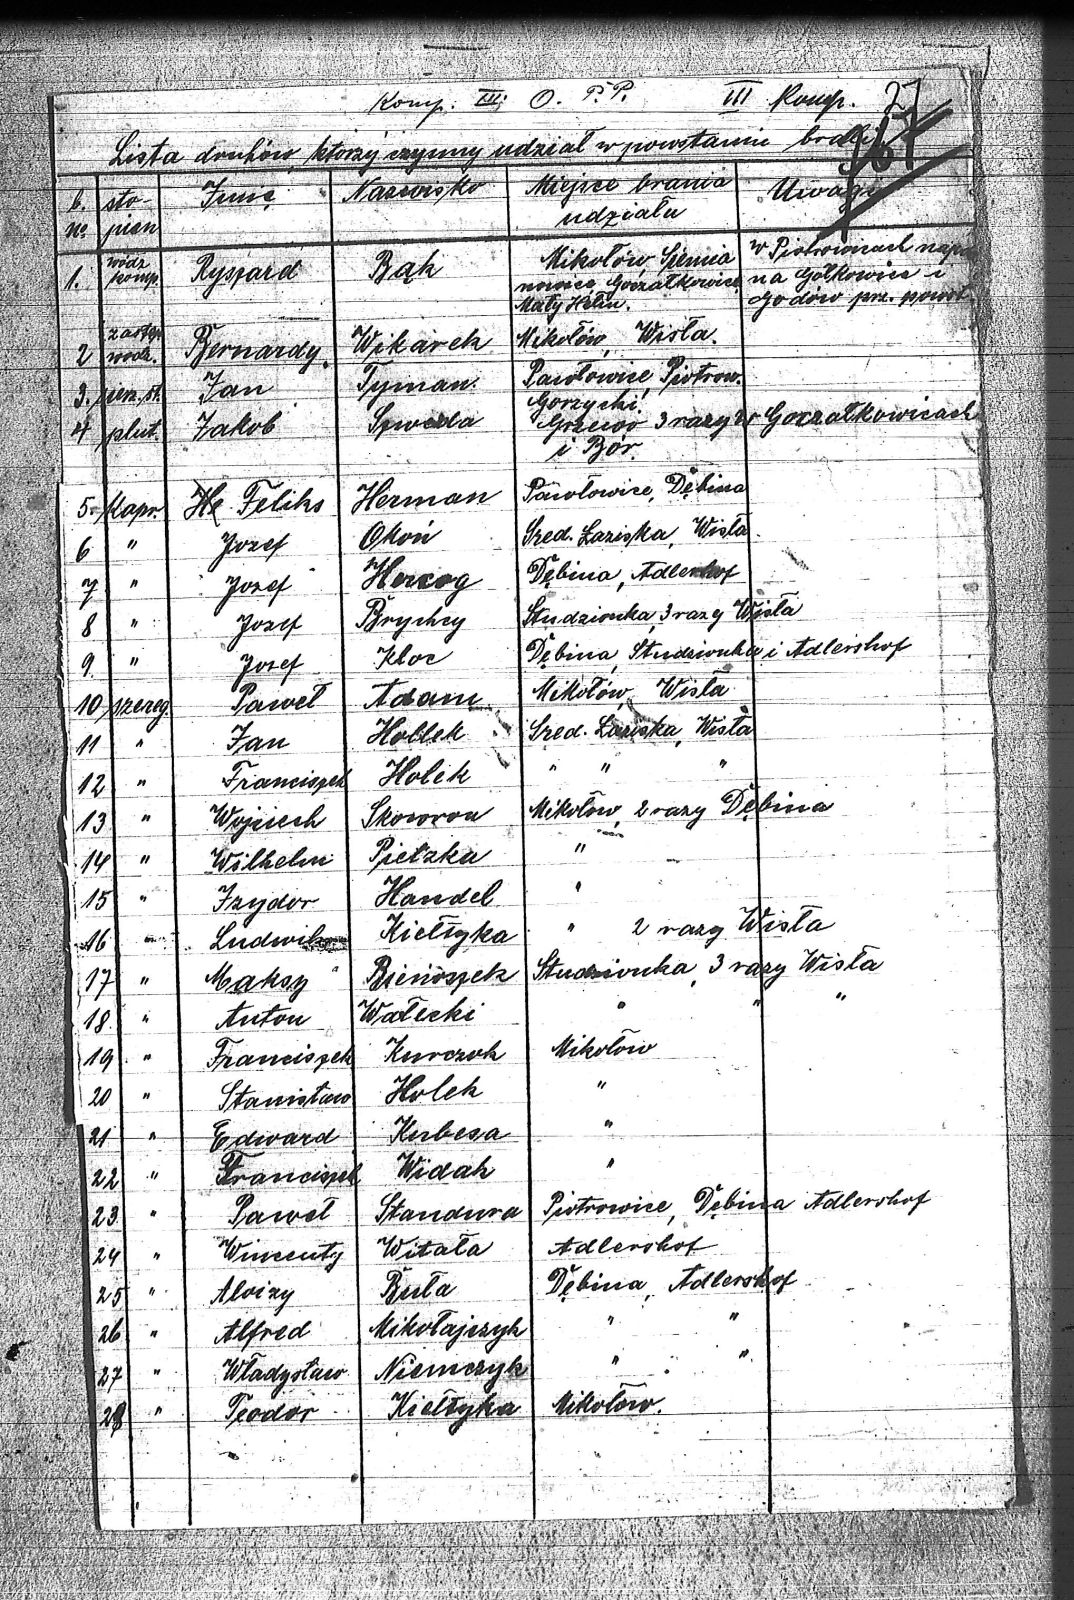 Komp. III; O. P.P. III Komp. 27
67
Lista druhów, którzy czynny udział w powstaniu brali
b. no. sto-pien Imię Nazwisko Miejsce brania udziału Uwagi
1. wódz komp. Ryszard Bąk Mikołów, Goczałkowice, w Piotrowicach
na Gołkowice i
Godów prz. powst.
2 zastęp. wodz. Bernardy. Wikarek Mikołów, Wisła.
3. Jan Tyman. Pawłowice, Piotrow.
Gorzycki.
4 plut. Jakób Szweda 3 razy w Goczałkowicach
i Bór.
5. Kapr. He Feliks Herman Pawłowice, Dębina
6 " Jozef Okoń Sred. Łaziska, Wisła.
7 " Jozef Herzog Dębina, Adlershof
8 " Jozef Brychcy Studzionka, 3 razy Wisła
9 " Jozef Kloc Dębina, Studzionka i Adlershof
10 szereg. Paweł Adam Mikołów, Wisła
11 " Jan Hollek Sred. Łaziska, Wisła
12 " Franciszek Holek " " "
13 " Wojciech Skowron Mikołów, 2 razy Dębina
14 " Wilhelm Pietzka "
15 " Izydor Handel "
16 " Ludwik Kiełtyka " 2 razy Wisła
17 " Maksy Bieniószek Studzionka, 3 razy Wisła
18 " Anton Wałecki " " "
19 " Franciszek Kurczok Mikołów
20 " Stanisław Holek "
21 " Edward Kubesa "
22 " Franciszek Widak "
23 " Paweł Standura Piotrowice, Dębina Adlershof
24 " Wincenty Witała Adlershof
25 " Aloizy Buła Dębina, Adlershof
26 " Alfred Mikołajczyk " "
27 " Władysław Niemczyk " "
28 " Teodor Kiełtyka Mikołów.